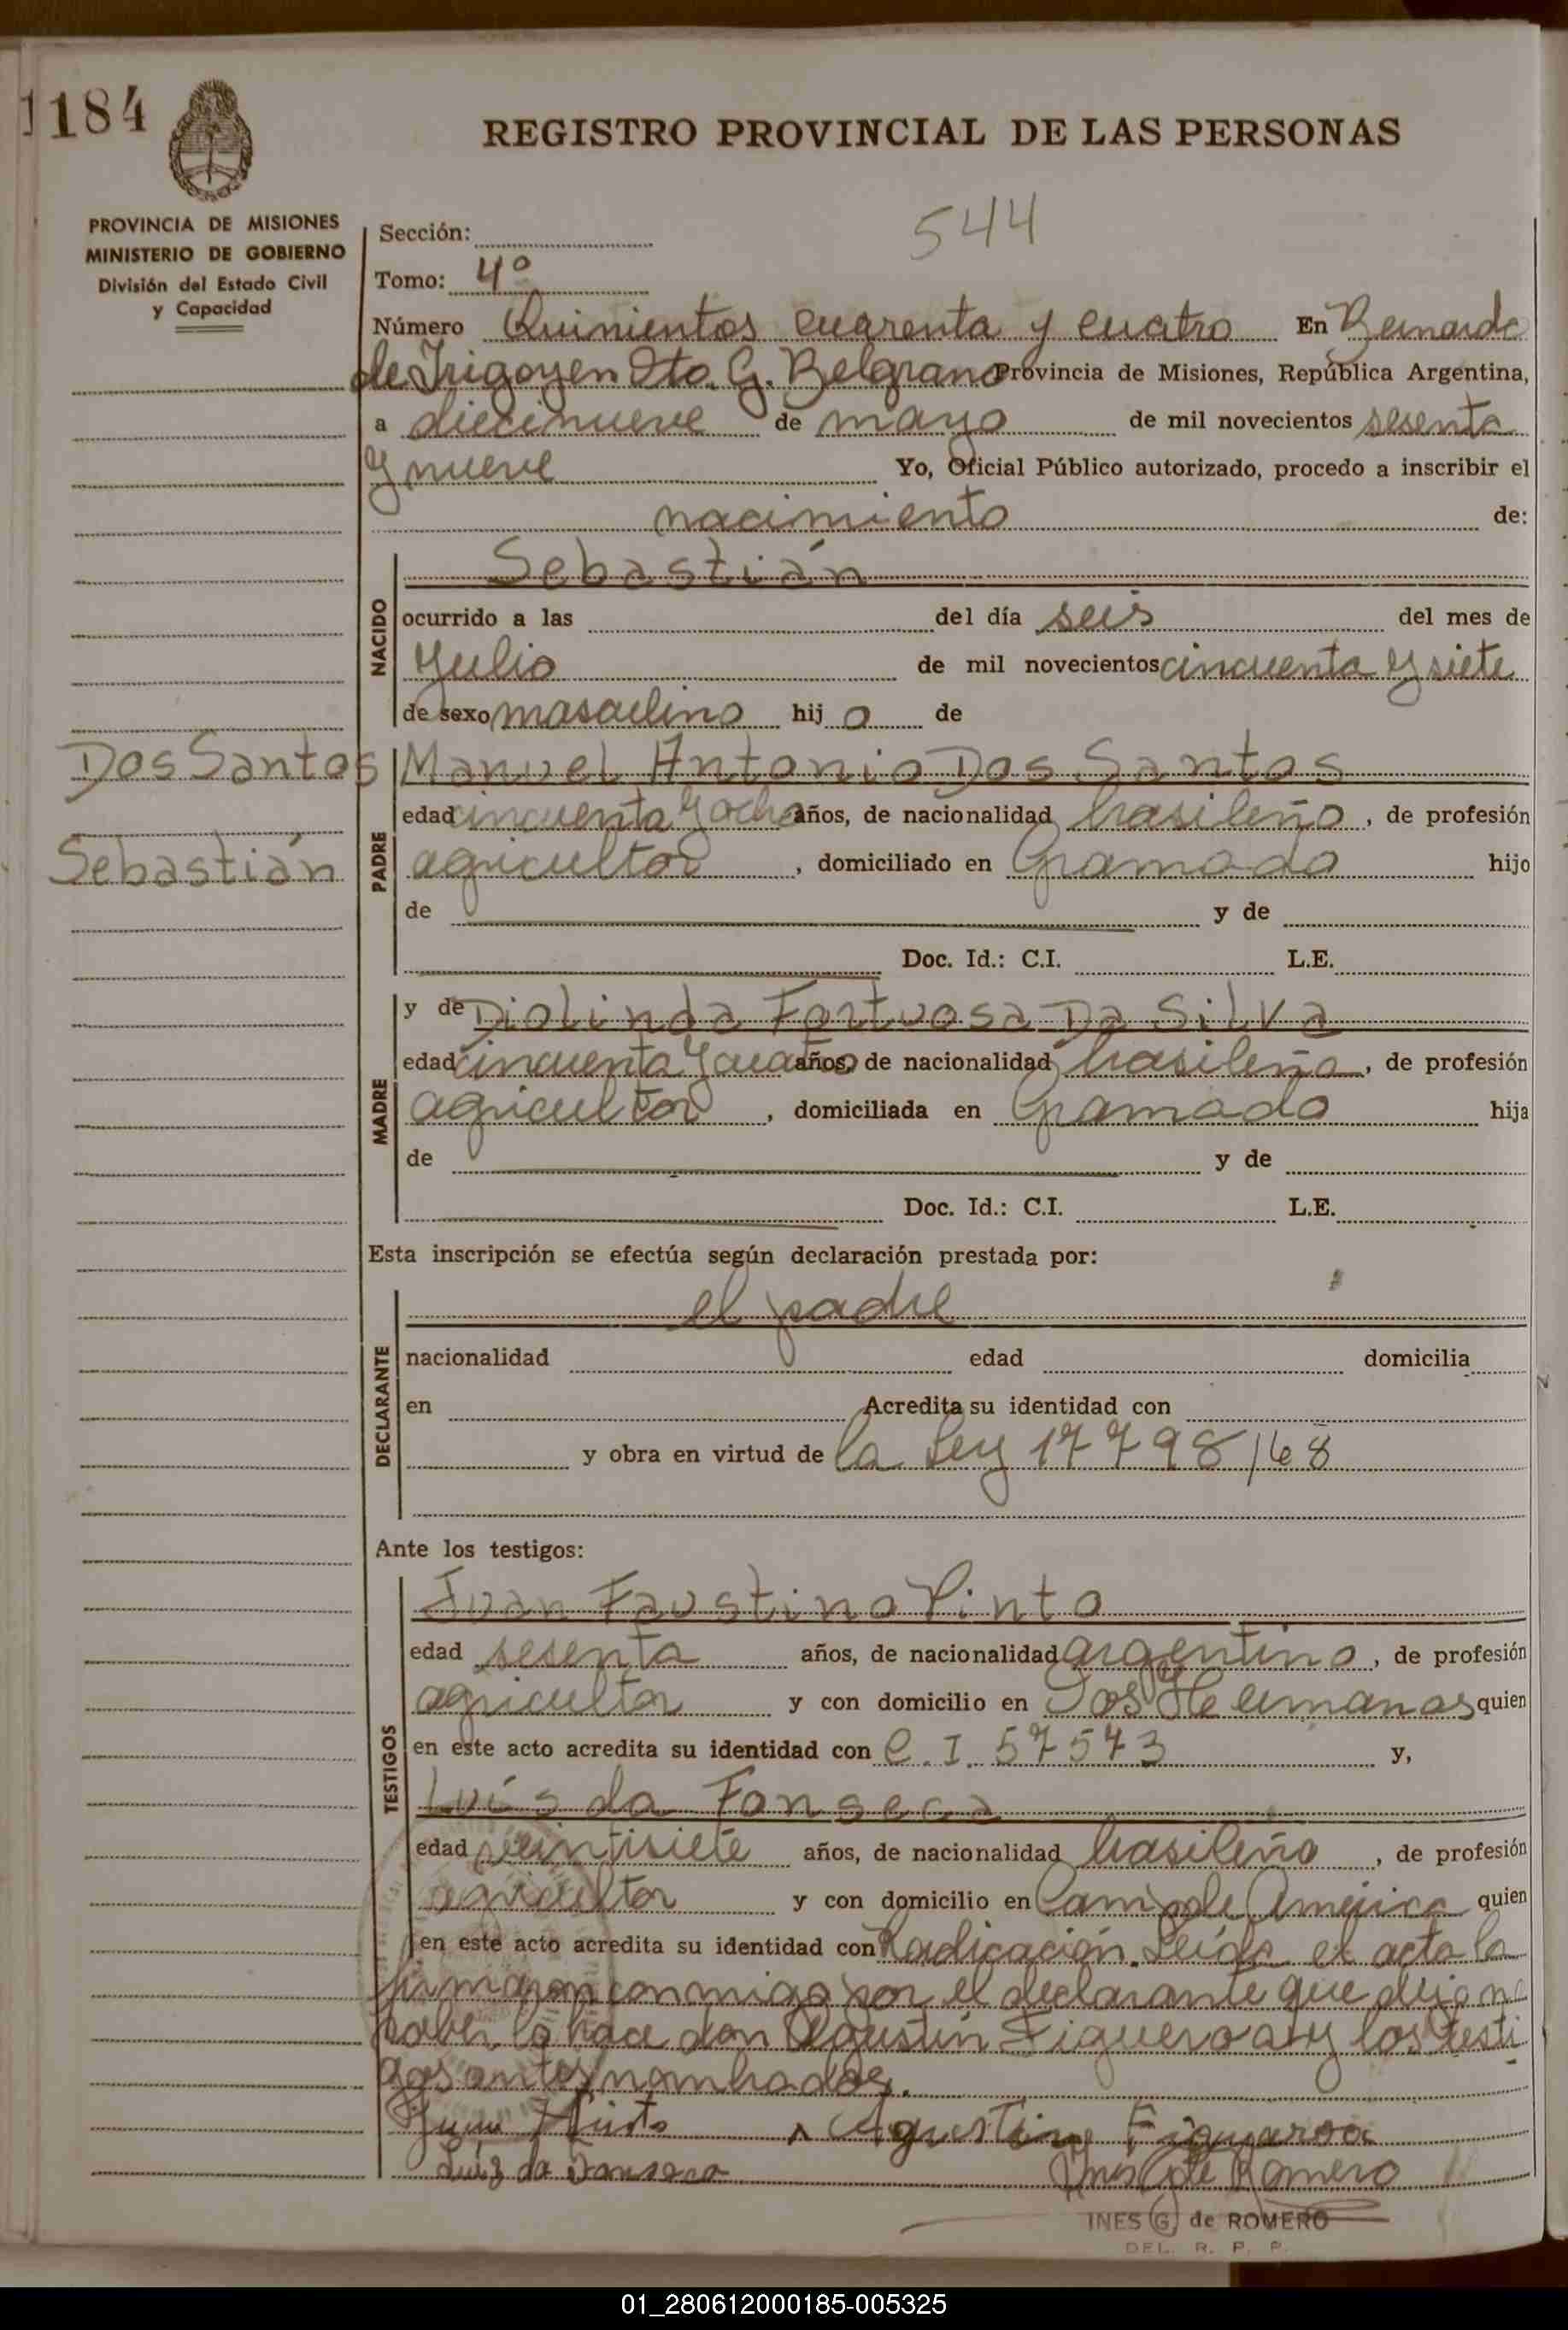 1184
REGISTRO PROVINCIAL DE LAS PERSONAS
PROVINCIA DE MISIONES
MINISTERIO DE GOBIERNO
División del Estado Civil
y Capacidad
544
Sección:
Tomo: 4º
Número Quinientos cuarenta y cuatro En Bernardo
de Irigoyen Dto. G. Belgrano Provincia de Misiones, República Argentina,
a diecinueve de mayo de mil novecientos sesenta
y nueve Yo, Oficial Público autorizado, procedo a inscribir el
nacimiento de:
NACIDO
Sebastián
ocurrido a las del día seis del mes de
Julio de mil novecientos cincuenta y siete
de sexo masculino hijo de
Dos Santos
Sebastián
PADRE
Manuel Antonio Dos Santos
edad cincuenta y ocho años, de nacionalidad brasileño, de profesión
agricultor, domiciliado en Gramado hijo
de y de
Doc. Id.: C.I. L.E.
MADRE
y de Diolinda Fortuosa Da Silva
edad cincuenta y cuatro años, de nacionalidad brasileña, de profesión
agricultor, domiciliada en Gramado hija
de y de
Doc. Id.: C.I. L.E.
Esta inscripción se efectúa según declaración prestada por:
DECLARANTE
el padre
nacionalidad edad domicilia
en Acredita su identidad con
y obra en virtud de la Ley 17798/68
Ante los testigos:
TESTIGOS
Juan Faustino Pinto
edad sesenta años, de nacionalidad argentino, de profesión
agricultor y con domicilio en Dos Hermanas quien
en este acto acredita su identidad con C. I. 57573 y,
Luís da Fonseca
edad veintisiete años, de nacionalidad brasileño, de profesión
agricultor y con domicilio en América quien
en este acto acredita su identidad con Radicación. Leída el acta la
firmaron conmigo por el declarante que dijo no
saber lo hace don Agustín Figueroa y los testi
gos antes nombrados.
Juan Pinto Agustin Figueroa
Luiz da Fonseca Ines G de Romero
INES G. de ROMERO
DEL. R. P. P.
01_280612000185-005325